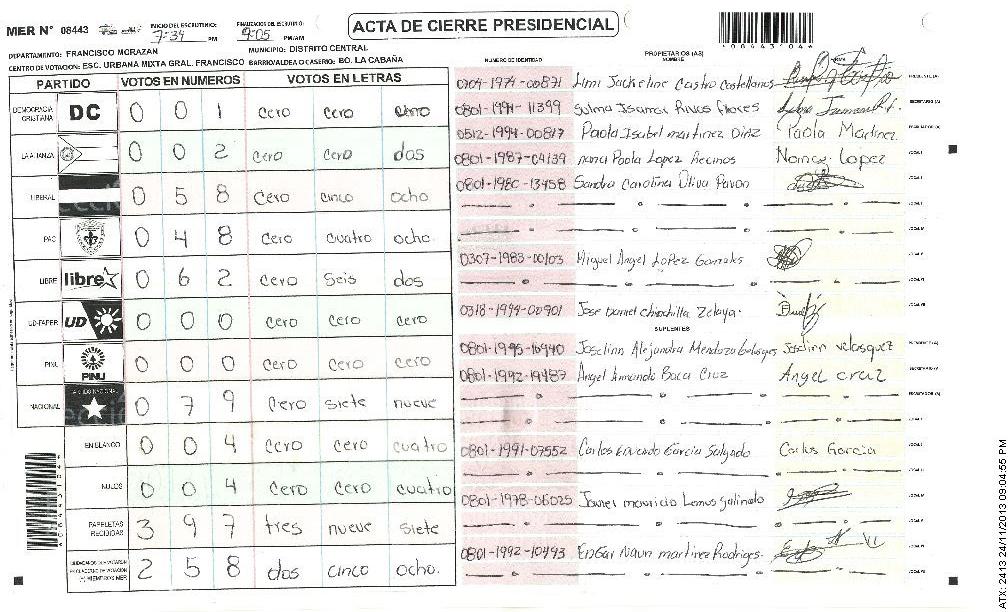 MER N° 08443 INICIO DEL ESCRUTINIO: 7:34 PM FINALIZACION DEL ESCRUTINIO: 9:05 PM/AM ACTA DE CIERRE PRESIDENCIAL
DEPARTAMENTO: FRANCISCO MORAZAN MUNICIPIO: DISTRITO CENTRAL
CENTRO DE VOTACION: ESC. URBANA MIXTA GRAL. FRANCISCO BARRIO/ALDEA O CASERIO: BO. LA CABAÑA
NUMERO DE IDENTIDAD PROPIETARIOS (AS) NOMBRE FIRMA
PARTIDO VOTOS EN NUMEROS VOTOS EN LETRAS
DEMOCRACIA CRISTIANA DC 0 0 1 cero cero uno
LA ALIANZA 0 0 2 cero cero dos
LIBERAL 0 5 8 cero cinco ocho
PAC 0 4 8 cero cuatro ocho
LIBRE libre 0 6 2 cero seis dos
UD-FAPER UD 0 0 0 cero cero cero
PINU PINU 0 0 0 cero cero cero
NACIONAL 0 7 9 cero siete nueve
EN BLANCO 0 0 4 cero cero cuatro
NULOS 0 0 4 cero cero cuatro
PAPELETAS RECIBIDAS 3 9 7 tres nueve siete
2 5 8 dos cinco ocho.
0704-1974-00871 Jackeline Castro Castellanos PRESIDENTE (A)
0801-1991-11399 Isamar Rivas SECRETARIO (A)
0512-1994-00817 Paola Isabel martinez Diaz Paola Martinez ESCRUTADOR (A)
0801-1987-04139 Paola Lopez Nancy Lopez
0801-1980-13458 Sandra Carolina Oliva Pavon
0307-1983-00103 Miguel Angel Lopez Gonzales
0318-1994-00901 Jose Daniel chinchilla Zelaya.
SUPLENTES
0801-1995-16940 Alejandra Mendoza velasquez
0801-1992-19487 Angel Armando Baca Cruz Angel cruz
0801-1991-07552 Carlos Garcia Salgado Carlos Garcia
0801-1978-06025 mauricio Lemus
0801-1992-10493 martinez Rodriges.
ATX: 2413 24/11/2013 09:04:55 PM